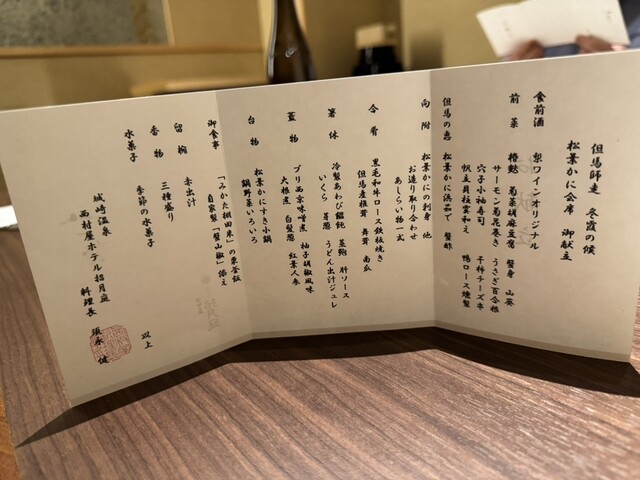 但馬師走 冬霞の候
松葉かに会席 御献立
食前酒 梨ワインオリジナル
前菜 椿麩 菊菜胡麻豆腐 蟹身 山葵
サーモン菊花巻き うさぎ百合根
穴子小袖寿司 干柿チーズ串
帆立貝枝雲和え 鴨ロース燻製
但馬の恵 松葉かに浜茹で 蟹酢
向附 松葉かにの刺身 他
お造り取り合わせ
あしらい物一式
合肴 黒毛和牛ロース鉄板焼き
但馬産椎茸 舞茸 南瓜
箸休 冷製あわび饂飩 蒸鮑 肝ソース
いくら 芽葱 うどん出汁ジュレ
蓋物 ブリ西京味噌煮 柚子胡椒風味
大根煮 白髪葱 紅葉人参
台物 松葉かにすき小鍋
鍋野菜いろいろ
御食事 「みかた棚田米」の東釜飯
自家製「蟹山椒」添え
留椀 赤出汁
香物 三種盛り
水菓子 季節の水菓子
以上
城崎温泉
西村屋ホテル招月庭
料理長 須永 健